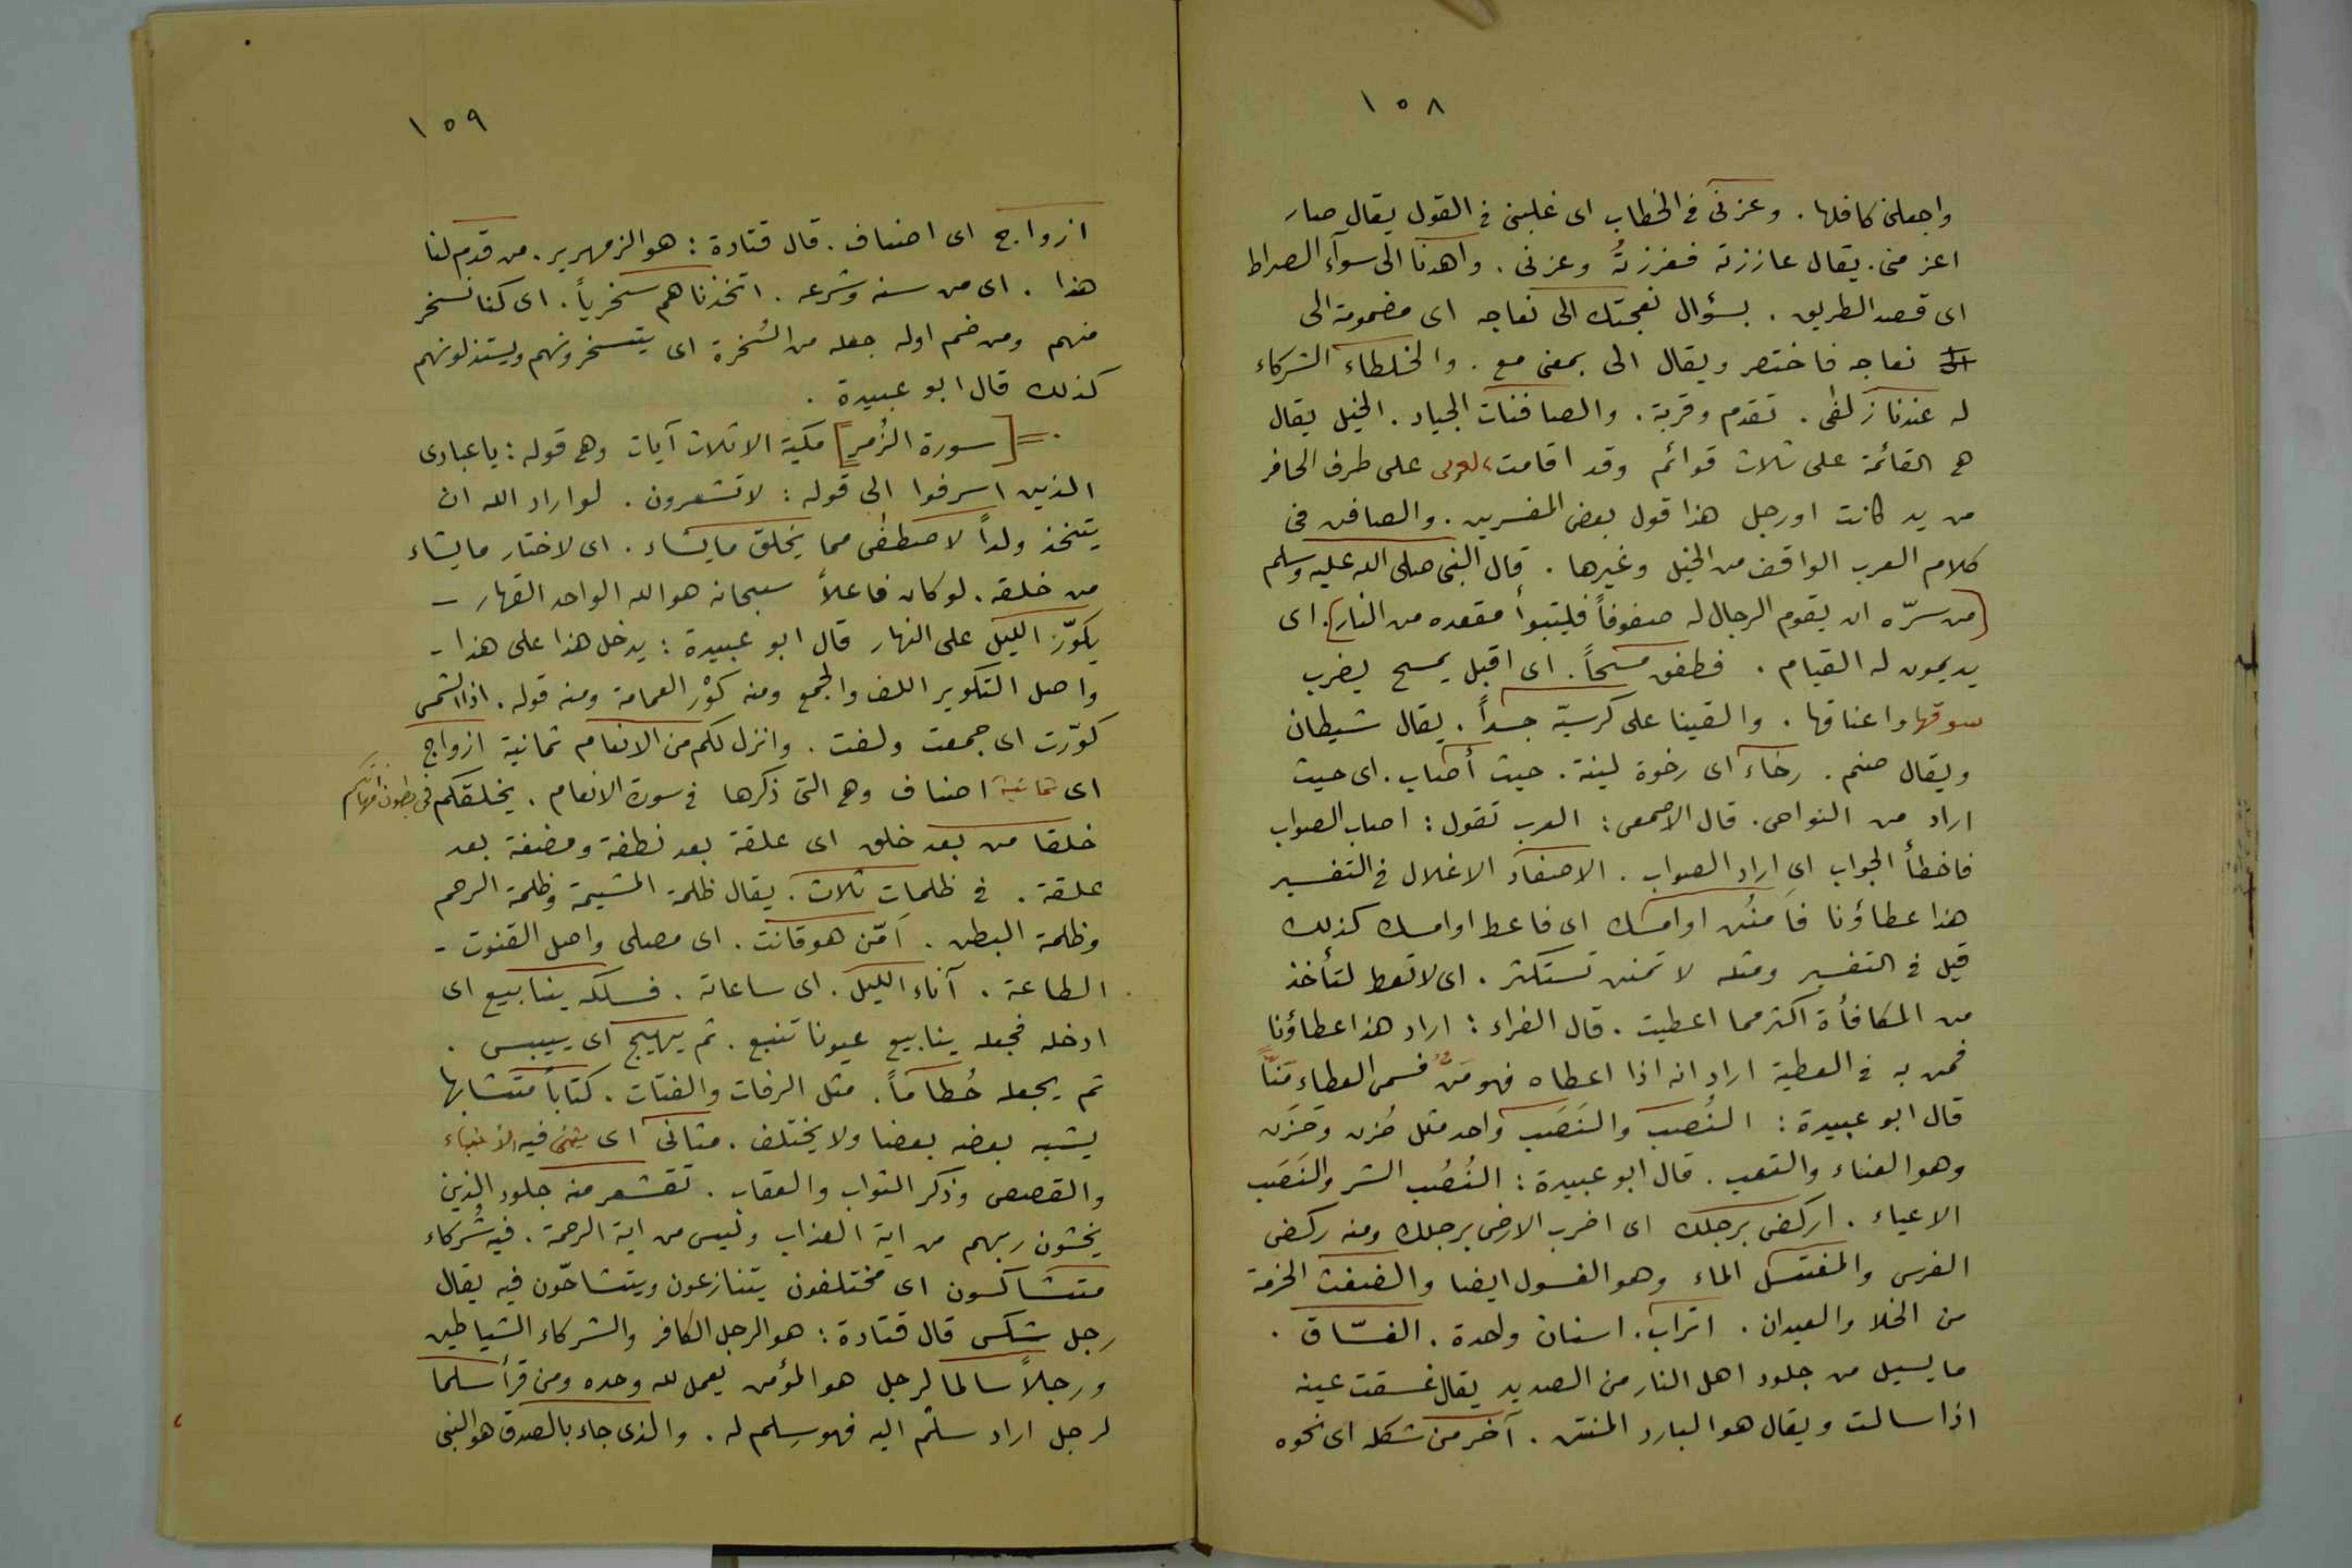 ١٥٨
واجعلنى كافلها . وعزنى فى الخطاب اى غلبنى فى القول يقال صار
اعز منى . يقال عاززته فعززتهُ وعزنى . واهدنا الى سوآء الصراط
اى قصد الطريق . بسؤال نعجتك الى نعاجه اى مضمومة الى
نعاجه فاختصر ويقال الى بمعنى مع . والخلطاء الشركاء
له عندنا زلفى . تقدم وقربة . والصافنات الجياد . الخيل يقال
هى القائمة على ثلاث قوائم وقد اقامت الاخرى على طرف الحافر
من يد كانت او رجل هذا قول بعض المفسرين . والصافن فى
كلام العرب الواقف من الخيل وغيرها . قال النبى صلى الله عليه وسلم
(من سرّه ان يقوم الرجال له صفوفاً فليتبوأ مقعده من النار). اى
يديمون له القيام . فطفق مسحاً . اى اقبل يمسح يضرب
سوقها واعناقها . والقينا على كرسيّه جسداً . يقال شيطان
ويقال صنم . رخاء اى رخوة لينة . حيث أصاب . اى حيث
اراد من النواحى . قال الاصمعى : العرب تقول : اصاب الصواب
فاخطأ الجواب اى اراد الصواب . الاصفاد الاغلال فى التفسير
هذا عطاؤنا فَامنُن او امسك اى فاعط او امسك كذلك
قيل فى التفسير ومثله لا تمنن تستكثر . اى لا تعط لتأخذ
من المكافأة اكثر مما اعطيت . قال الفراء : اراد هذا عطاؤنا
فمن به فى العطية اراد انه اذا اعطاه فهو مَنٌّ فسمى العطاء مَنّاً
قال ابو عبيدة : النُصب والنَصَب واحد مثل حُزن وحَزَن
وهو العناء والتعب . قال ابو عبيدة : النُصُب الشر والنَصَب
الاعياء . اركض برجلك اى اضرب الارض برجلك ومنه ركض
الفرس والمغتسل الماء وهو الغسول ايضا والضغث الحزمة
من الخلا والعيدان . اتراب . اسنان واحدة . الغسّاق .
ما يسيل من جلود اهل النار من الصديد يقال غسقت عينه
اذا سالت ويقال هو البارد المنتن . آخر من شكله اى نحوه
١٥٩
ازواج اى اصناف . قال قتادة : هو الزمهرير . من قدم لنا
هذا . اى من سنه وشرعه . اتخذناهم سخرياً . اى كنا نسخر
منهم ومن ضم اوله جعله من السُخرة اى يتسخرونهم ويستذلونهم
كذلك قال ابو عبيدة .
[سورة الزُمر] مكية الا ثلاث آيات وهى قوله : يا عبادى
الذين اسرفوا الى قوله : لا تشعرون . لو اراد الله ان
يتخذ ولداً لاصطفى مما يخلق ما يشاء . اى لاختار ما يشاء
من خلقه . لو كان فاعلاً سبحانه هو الله الواحد القهار -
يكوّر الليل على النهار قال ابو عبيدة : يدخل هذا على هذا -
واصل التكوير اللف والجمع ومنه كوْر العمامة ومنه قوله . اذا الشمس
كوّرت اى جمعت ولفت . وانزل لكم من الانعام ثمانية ازواج
اى ثمانية اصناف وهى التى ذكرها فى سورة الانعام . يخلقكم فى بطون امهاتكم
خلقا من بعد خلق اى علقة بعد نطفة ومضغة بعد
علقة . فى ظلمات ثلاث . يقال ظلمة المشيمة وظلمة الرحم
وظلمة البطن . اَمّن هو قانت . اى مصلى واصل القنوت -
الطاعة . آناء الليل . اى ساعاته . فسلكه ينابيع اى
ادخله فجعله ينابيع عيونا تنبع . ثم يهيج اى ييبس .
ثم يجعله حُطاماً . مثل الرفات والفتات . كتاباً متشابها
يشبه بعضه بعضا ولا يختلف . مثانى اى يثنى فيه الانباء
والقصص وذكر الثواب والعقاب . تقشعر منه جلود الذين
يخشون ربهم من اية العذاب وليس من اية الرحمة . فيه شُركاء
متشاكسون اى مختلفون يتنازعون ويتشاحّون فيه يقال
رجل شكس قال قتادة : هو الرجل الكافر والشركاء الشياطين
ورجلاً سالما لرجل هو المؤمن يعمل لله وحده ومن قرأ سلما
لرجل اراد سلّم اليه فهو سِلم له . والذى جاء بالصدق هو النبى